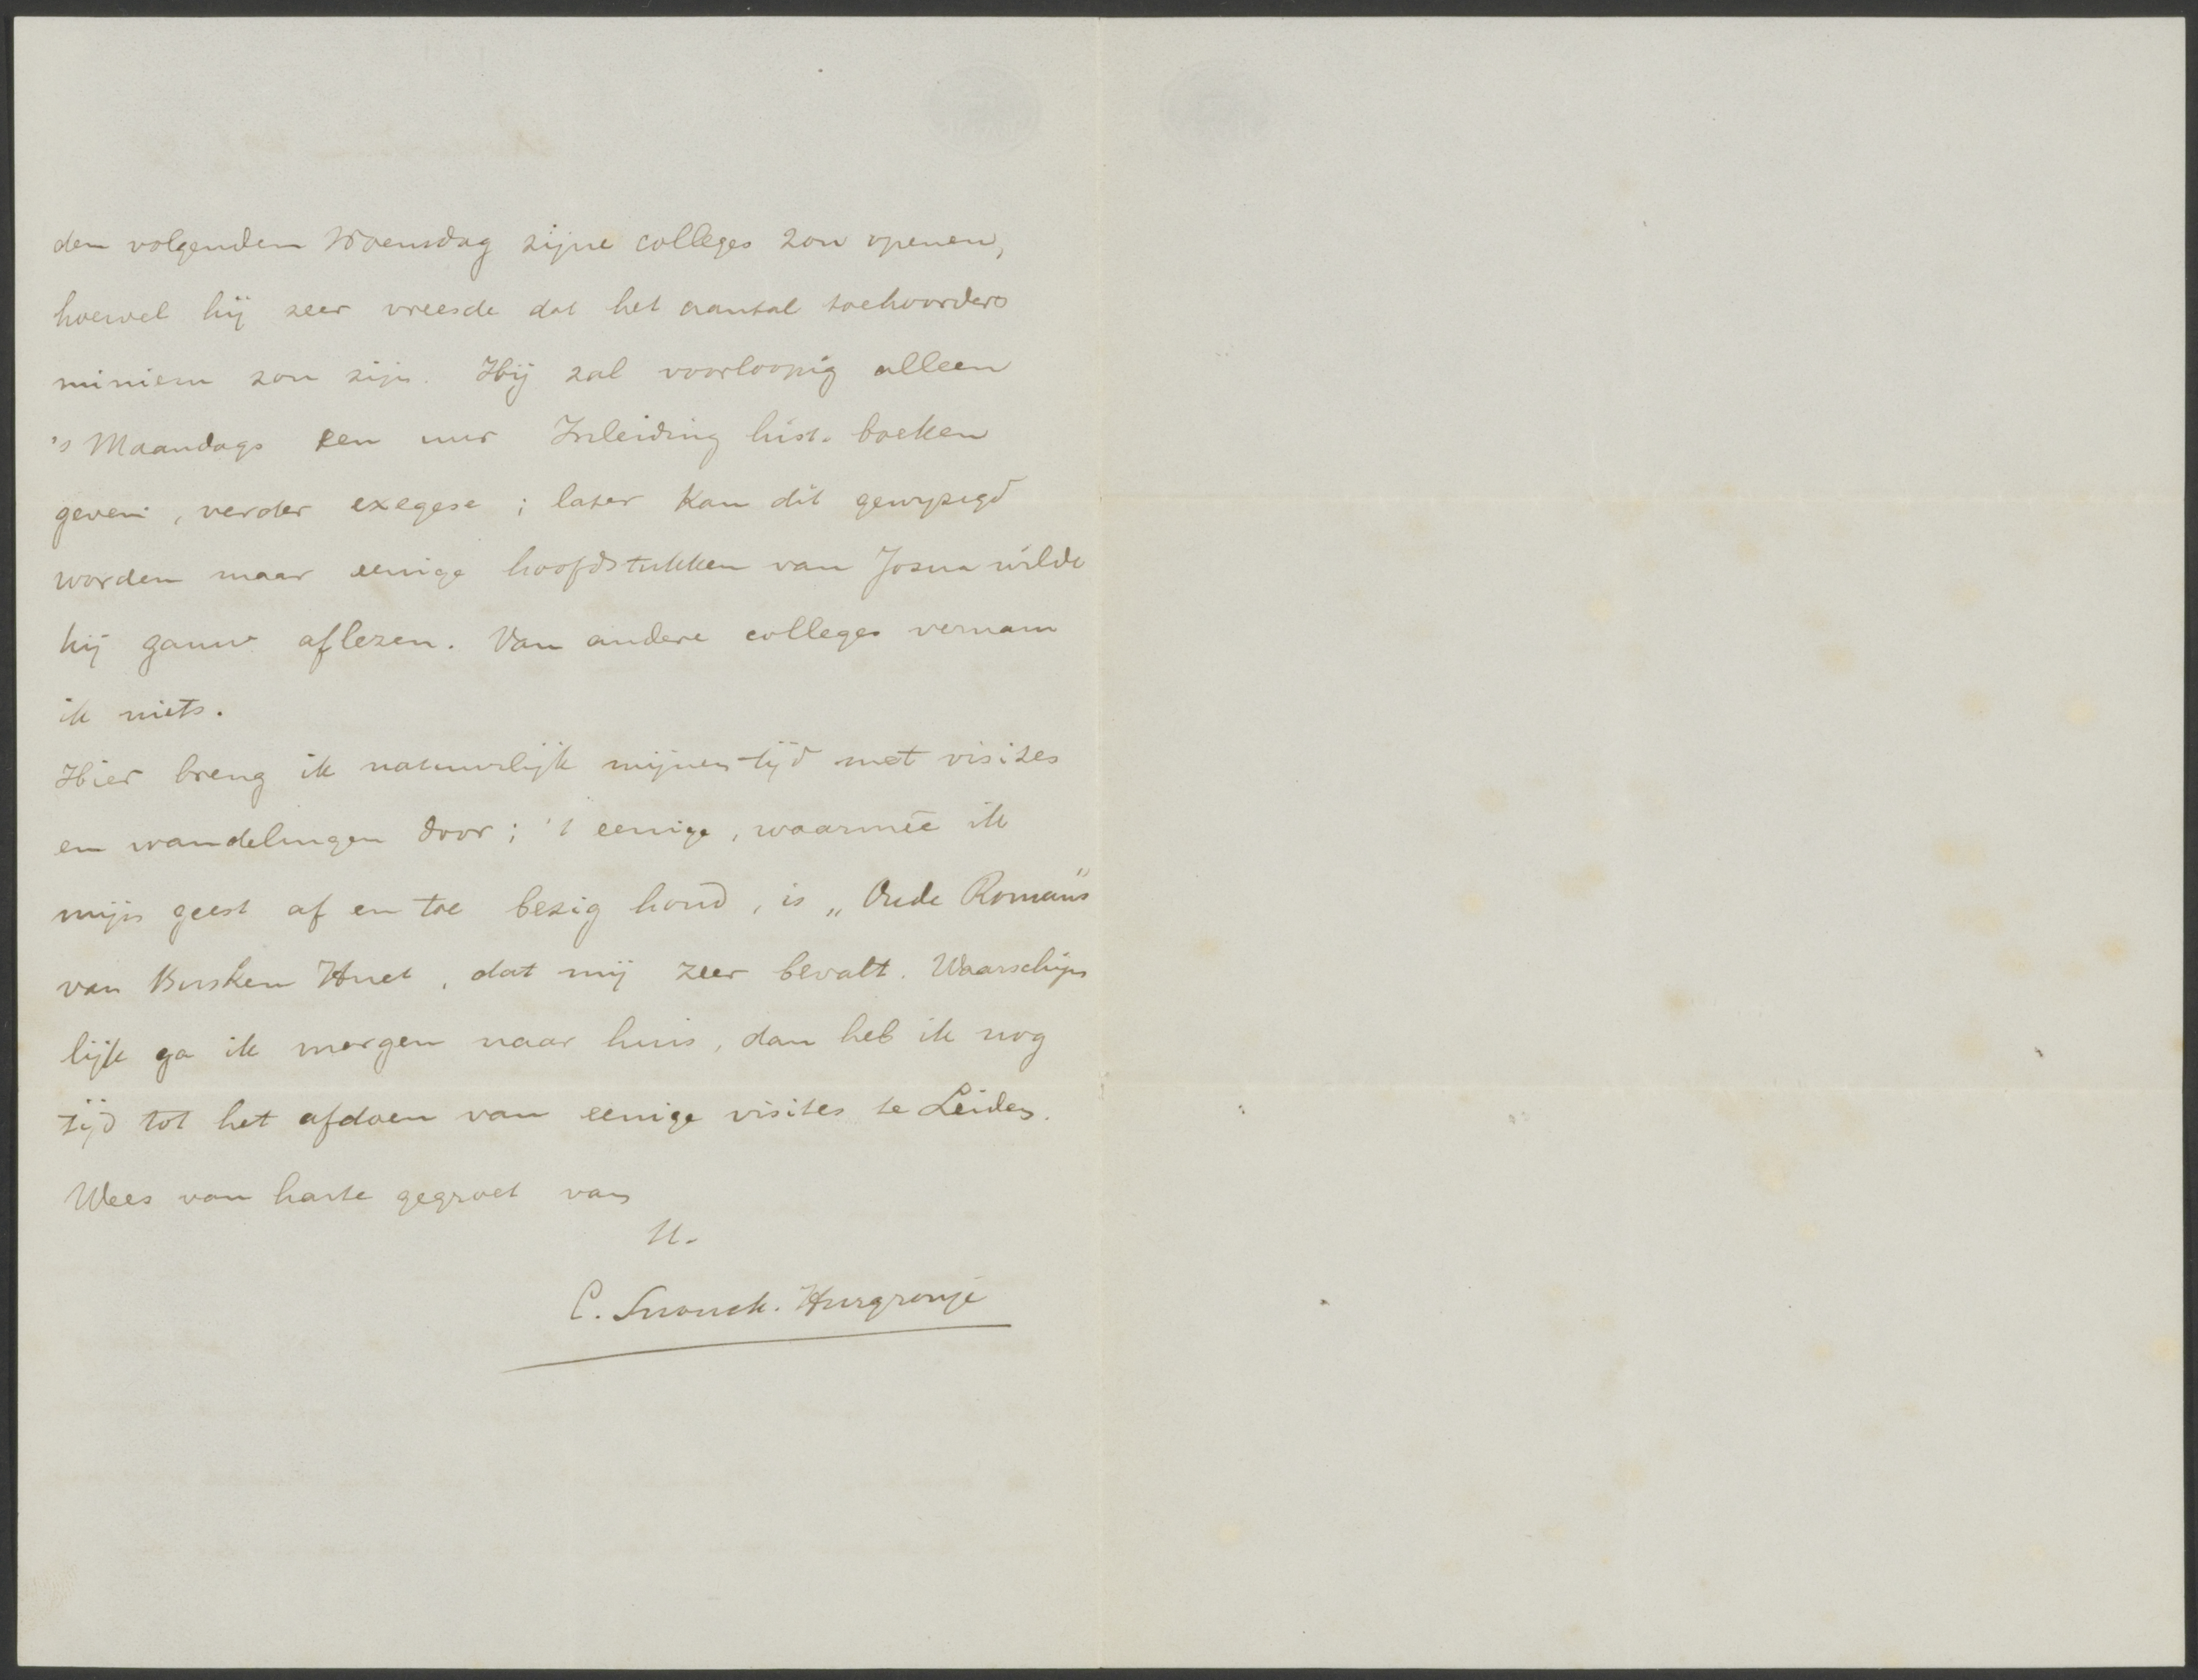 den volgenden Woensdag zijne colleges zou openen,
hoewel hij zeer vreesde dat het aantal toehoorders
miniem zou zijn. Hij zal voorloopig alleen
's Maandags een uur Inleiding hist. boeken
geven, verder exegese; later kan dit gewyzigd
worden maar eenige hoofdstukken van Josua wilde
hij gauw aflezen. Van andere colleges vernam
ik niets.
Hier breng ik natuurlijk mijnen tijd met visites
en wandelingen door; 't eenige, waarmeê ik
mijn geest af en toe bezig houd, is „Oude Romans"
van Busken Huet, dat mij zeer bevalt. Waarschijn
lijk ga ik morgen naar huis, dan heb ik nog
tijd tot het afdoen van eenige visites te Leiden.
Wees van harte gegroet van
U.
C. Snouck. Hurgronje